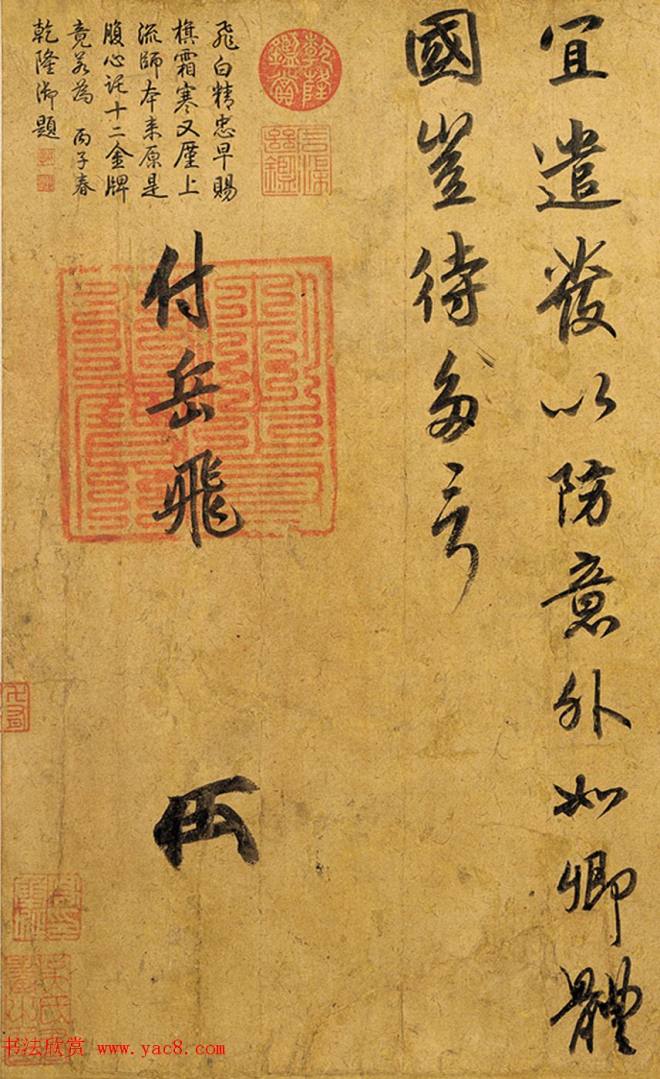 宜遣發以防意外如卿體
國豈待多言
付岳飛
飛白精忠早賜
旗霜寒又屢上
流師本来原是
腹心託十二金牌
竟若為 丙子春
乾隆御題
乾隆
鑑賞
书法欣赏 www.yac8.com